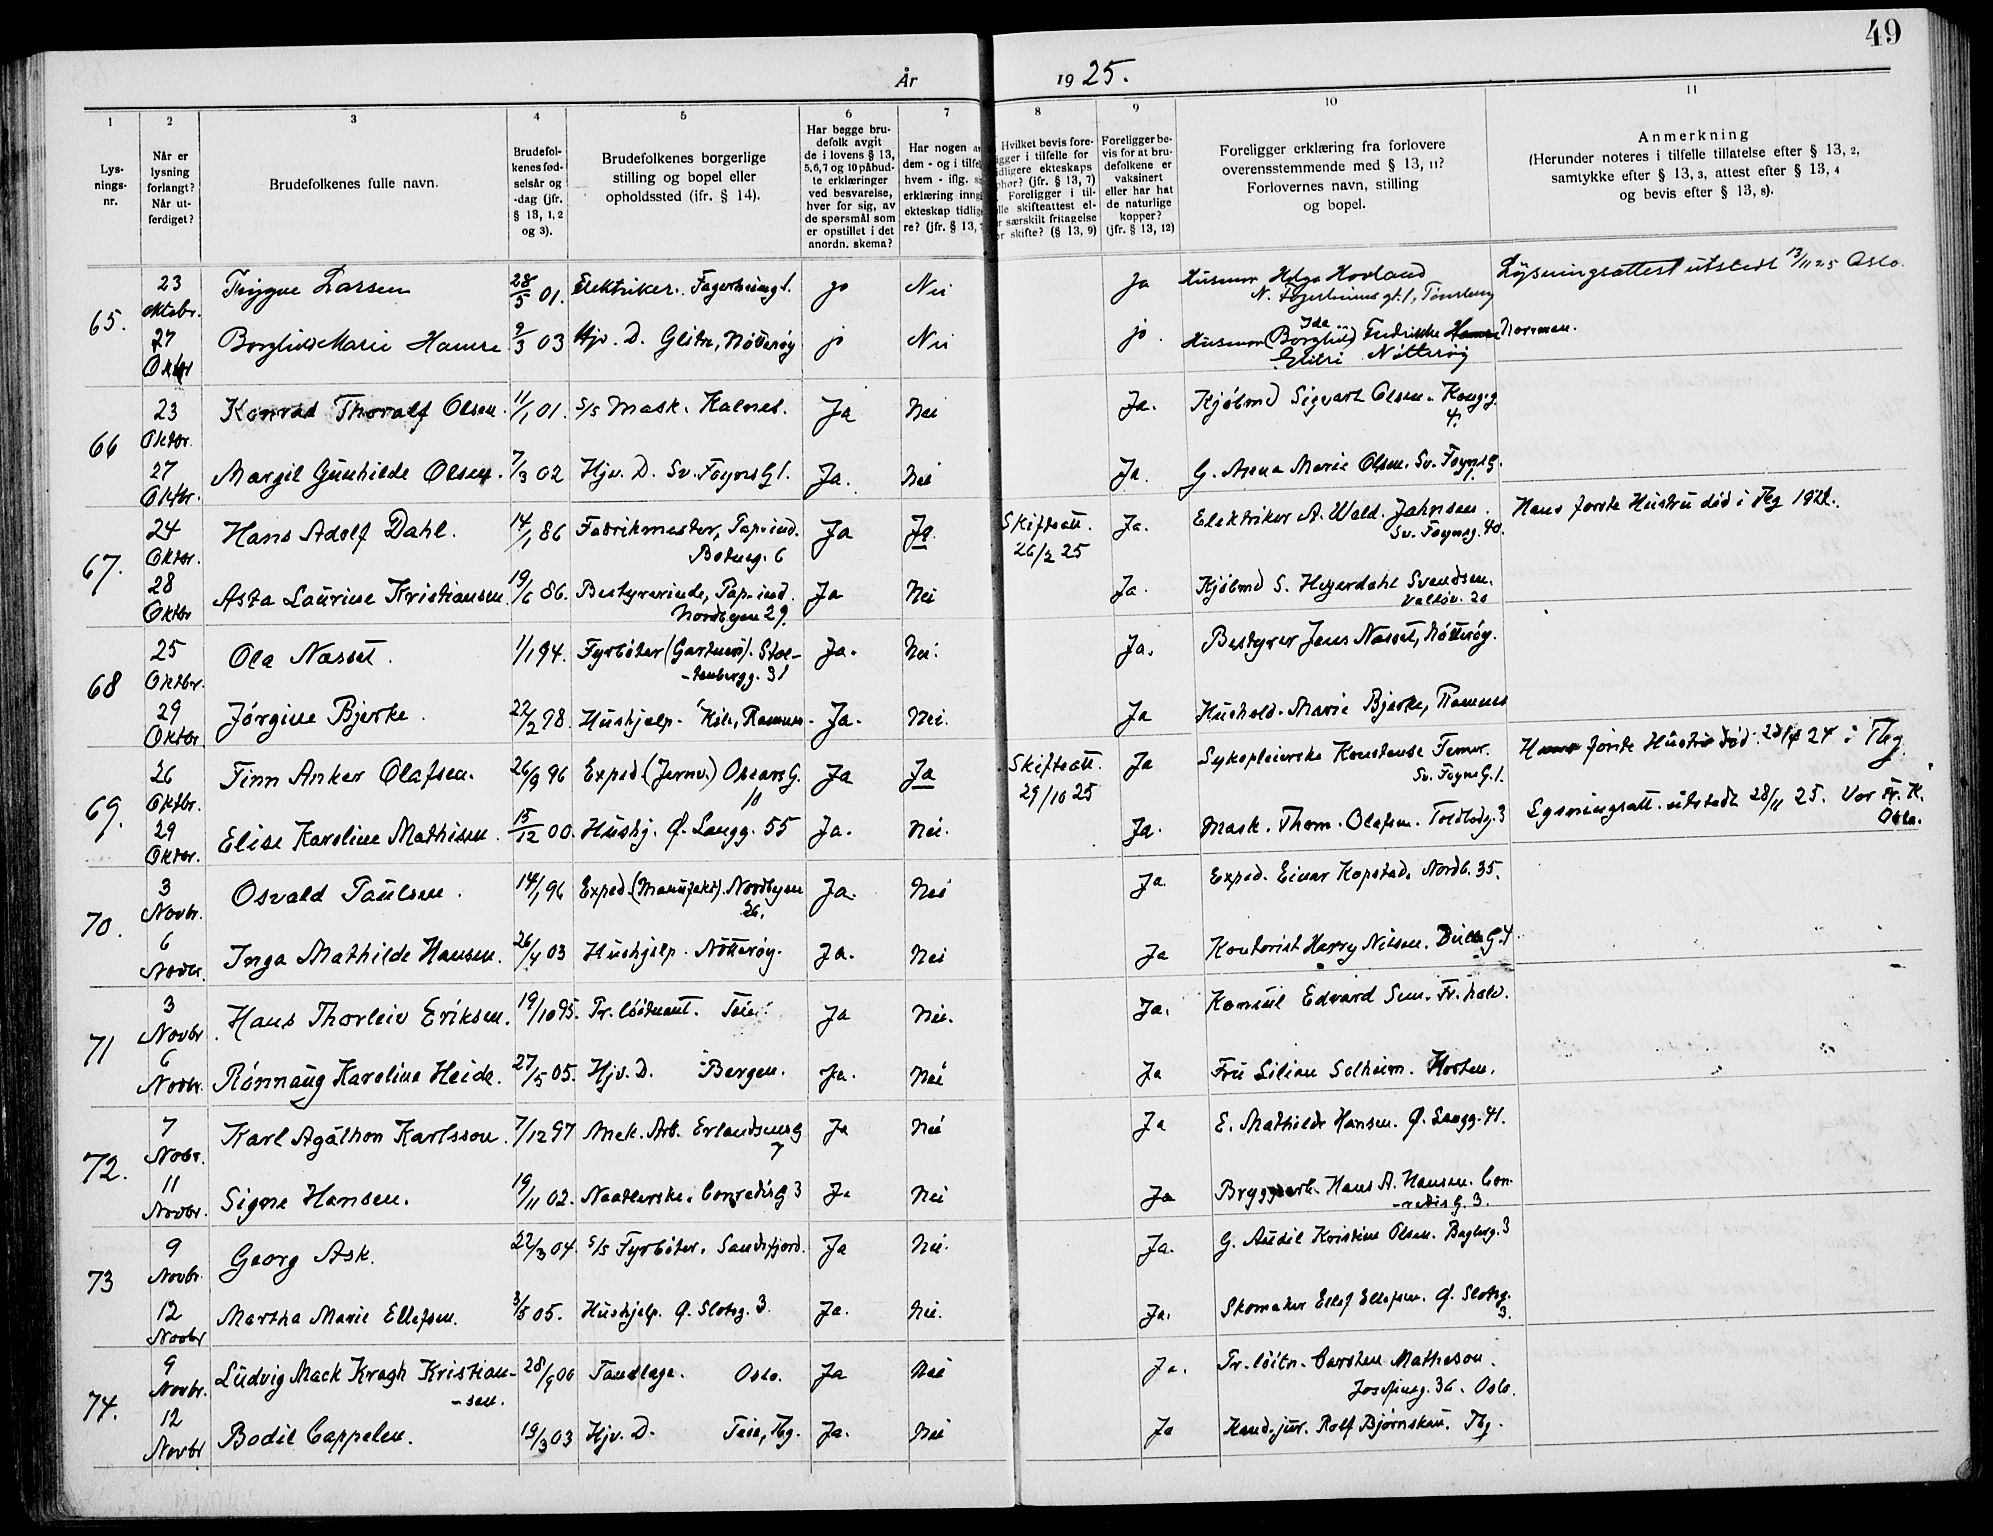 49
År 1925.
1 2 3 4 5 6 7 8 9 10 11
Lysnings-nr.
Når er lysning forlangt? Når utferdiget?
Brudefolkenes fulle navn.
Brudefolkenes fødselsår og -dag (jfr. § 13, 1, 2 og 3).
Brudefolkenes borgerlige stilling og bopel eller opholdssted (jfr. § 14).
Har begge brudefolk avgit de i lovens § 13, 5, 6, 7 og 10 påbudte erklæringer ved besvarelse, hver for sig, av de spørsmål som er opstillet i det anordn. skema?
Har nogen dem - og i tilfel hvem - iflg. erklæring inng ekteskap tidlig re? (jfr. § 13,
Hvilket bevis foreligger i tilfelle for tidligere ekteskaps ophør? (jfr. § 13, 7) Foreligger i tilfelle skifteattest eller særskilt fritagelse for skifte? (§ 13, 9)
Foreligger bevis for at brudefolkene er vaksinert eller har hat de naturlige kopper? (jfr. § 13, 12)
Foreligger erklæring fra forlovere overensstemmende med § 13, 11? Forlovernes navn, stilling og bopel.
Anmerkning (Herunder noteres i tilfelle tillatelse efter § 13, 2, samtykke efter § 13, 3, attest efter § 13, 4 og bevis efter § 13, 8).
65. 23 Oktobr. Trygve Larsen 28/5 01. Elektriker. Fagerheimg 1. ja Nei Ja Husmor Helga Hovland N. Fagerheims gt. 1, Tønsberg Lysningsattest utstedt 13/11 25 Oslo.
27 Oktbr Borghild Marie Hamre 9/3 03 Hjv. D. Glitre, Nøtterøy ja Nei ja. Husmor (Borghild) Ida Fredrikke Hamre Norman. Glitre Nøtterøy
66 23 Oktbr. Konrad Thoralf Olsen. 11/1 01. S/S Mask. Kalnes. Ja Nei Ja. Kjøbmd Sigvart Olsen. Kongsg. 4.
27 Oktbr. Margit Gunhilde Olsen. 7/3 02 Hjv. D. Sv. Foyns G 1. Ja. Nei Ja. G. Anna Marie Olsen. Sv. Foyns G. 1.
67. 24 Oktbr. Hans Adolf Dahl. 14/1 86 Fabrikmester, Pap-ind. Boteng. 6 Ja Ja. Skifteatt. 26/2 25 Ja. Elektriker A. Wald. Jahnsen. Sv. Foynsg. 40. Hans første Hustru død i Tbg 1922.
28 Oktbr Asta Laurine Kristiansen 19/6 86. Bestyrerinde, Pap-ind. Nordbyen 29. Ja Nei Ja. Kjøbmd S. Heyerdahl Svendsen. Valløv. 20
68 25 Oktbr. Ola Næsset. 1/1 94. Fyrbøter (Gartneri). Stoltenbergg. 31 Ja. Nei. Ja. Bestyrer Jens Næsset, Nøtterøy.
29 Oktbr. Jørgine Bjerke. 22/2 98. Hushjelp. Kile, Ramnes. Ja. Nei. Ja Hushold. Marie Bjerke, Ramnes
69. 26 Oktbr. Finn Anker Olafsen. 26/9 96 Exped. (Jernv.) Oscars G. 10 Ja Ja Skifteatt. 29/10 25 Ja Sykepleierske Konstanse Temer. Sv. Foyns G. 1. Hans første Hustru død 23/8 24 i Tbg.
29 Oktbr. Elise Karoline Mathisen. 15/12 00. Hushj. Ø. Langg. 55 Ja. Nei. Ja. Mask. Thom. Olafsen. Toldbodg. 3 Lysningsatt. utstedt 28/11 25. Vor Fr. K. Oslo.
70. 3 Novbr. Osvald Paulsen. 14/1 96 Exped. (Manufakt). Nordbyen 26. Ja. Nei Ja Exped. Einar Kopstad. Nordb. 35.
6 Novbr. Inga Mathilde Hansen. 26/4 03 Hushjelp. Nøtterøy. Ja. Nei Ja Kontorist Harry Nilsen. G. 4
71 3 Novbr Hans Thorleiv Eriksen. 19/10 95. Pr. løitnant. Teie. Ja Nei. Ja. Konsul Edvard Sem. Fr. halv.
6 Novbr. Rønnaug Karoline Heide. 27/5 05. Hjv. D. Bergen. Ja. Nei Ja Fru Lilian Solheim. Horten.
72. 7 Nobr. Karl Agathon Karlsson. 7/12 97 Mek. Arb. Erlandsens G 7 Ja Nei Ja E. Mathilde Hansen. Ø. Langg. 41.
11 Novbr. Signe Hansen. 19/11 02. Naatlerske. Conradis G 3 Ja Nei Ja Bryggearb. Hans A. Hansen. Conradis G. 3.
73 9 Novbr. Georg Ask. 22/3 04. S/S Fyrbøter. Sandefjord. Ja Nei. Ja. G. Audil Kristine Olsen. Bagberg. 3
12 Novbr Martha Marie Ellefsen. 3/5 05. Hushjelp. Ø. Slotsg. 3. Ja. Nei. Ja. Skomaker Ellef Ellefsen. Ø. Slotsg. 3.
74. 9 Novbr. Ludvig Mack Kragh Kristiansen. 28/9 00 Tandlæge. Oslo. Ja Nei Ja. Pr. løitn. Carsten Matheson. Josefinesg. 36. Oslo.
12 Novbr Bodil Cappelen. 19/3 03 Hjv. D. Teie, Tbg. Ja. Nei Ja Kand. jur. Rolf Bjørnskau. Tbg.